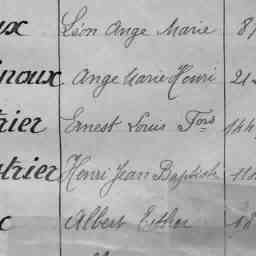 ux Léon Ange Marie 8
inoux Ange Marie Henri 21
rier Ernest Louis Fois 144
trier Henri Jean Baptiste 11
x Albert Esther 18